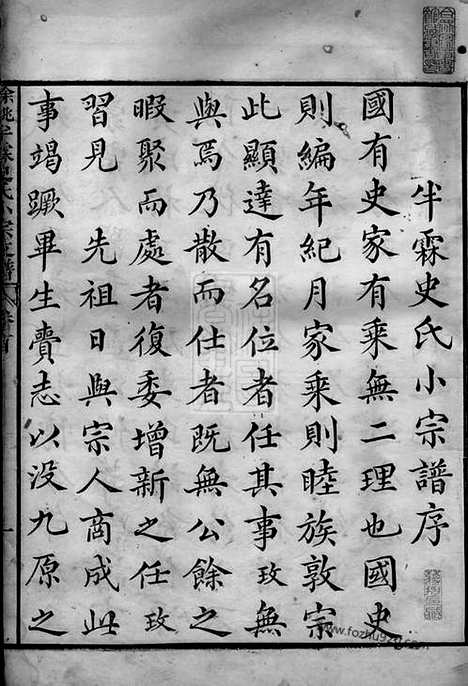 半霖史氏小宗譜序
國有史家有乘無二理也國史
則編年紀月家乘則睦族敦宗
此顯達有名位者任其事玫無
與焉乃散而仕者既無公餘之
暇聚而處者復委增新之任玫
習見　先祖日與宗人商成此
事竭蹶畢生賫志以没九原之
餘姚半霖史氏小宗支譜　卷首　一
www.fozhu920.com